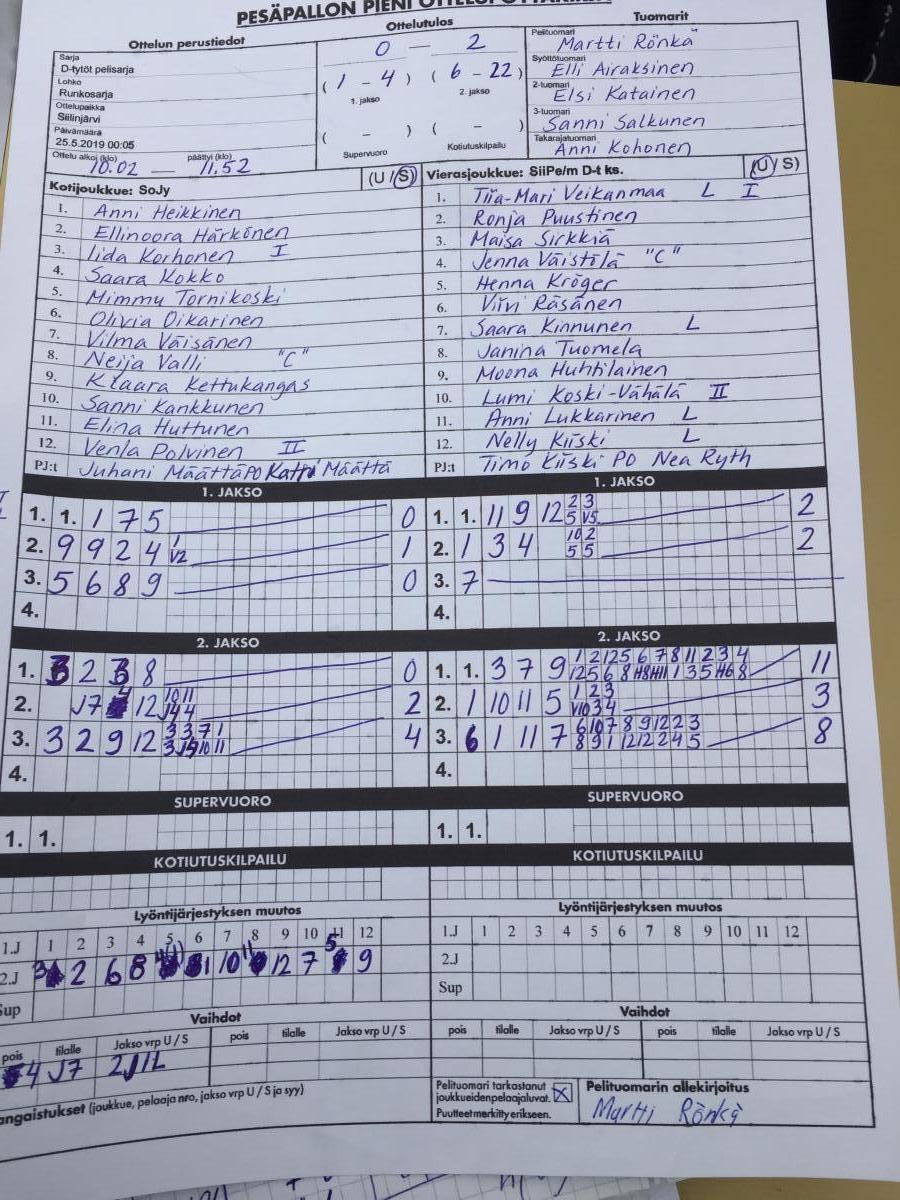 PESÄPALLON PIENI
Ottelun perustiedot
Sarja
D-tytöt pelisarja
Lohko
Runkosarja
Ottelupaikka
Siilinjärvi
Päivämäärä
25.5.2019 00:05
Ottelu alkoi (klo) päättyi (klo)
10.02 — 11.52
Ottelutulos
0 — 2
(1 - 4) (6 - 22)
1. jakso 2. jakso
( - ) ( - )
Supervuoro Kotiutuskilpailu
Tuomarit
Pelituomari
Martti Rönkä
Syöttötuomari
Elli Airaksinen
2-tuomari
Elsi Katainen
3-tuomari
Sanni Salkunen
Takarajatuomari
Anni Kohonen
Kotijoukkue: SoJy (U / S)
1. Anni Heikkinen
2. Ellinoora Härkönen
3. Iida Korhonen I
4. Saara Kokko
5. Mimmu Tornikoski
6. Olivia Oikarinen
7. Vilma Väisänen
8. Neija Valli "C"
9. Klaara Kettukangas
10. Sanni Kankkunen
11. Elina Huttunen
12. Venla Polvinen II
PJ:t Juhani Määttä PO Määttä
Vierasjoukkue: SiiPe/m D-t ks. (U / S)
1. Tiia-Mari Veikanmaa L I
2. Ronja Puustinen
3. Maisa Sirkkiä
4. Jenna Väistölä "C"
5. Henna Kröger
6. Viivi Räsänen
7. Saara Kinnunen L
8. Janina Tuomela
9. Moona Huhtilainen
10. Lumi Koski-Vähälä II
11. Anni Lukkarinen L
12. Nelly Kiiski L
PJ:t Timo Kiiski PO Nea Ryth
1. JAKSO
1. 1. 1 7 5 0
2. 9 9 2 4 1 V2 1
3. 5 6 8 9 0
4.
1. JAKSO
1. 1. 11 9 12 2 3 5 V5 2
2. 1 3 4 10 2 5 5 2
3. 7
4.
2. JAKSO
1. 2 8 0
2. J7 12 10 11 J4 4 2
3. 3 2 9 12 3 3 7 1 4
4.
2. JAKSO
1. 1. 3 7 9 11
2. 1 10 11 5 1 2 3 V10 3 4 3
3. 6 1 11 7 6 10 7 8 9 12 2 3 8
4.
SUPERVUORO
1. 1.
SUPERVUORO
1. 1.
KOTIUTUSKILPAILU
KOTIUTUSKILPAILU
Lyöntijärjestyksen muutos
1.J 1 2 3 4 5 6 7 8 9 10 11 12
2.J 3 2 6 8 10 12 7 5 9
Sup
Lyöntijärjestyksen muutos
1.J 1 2 3 4 5 6 7 8 9 10 11 12
2.J
Sup
Vaihdot
pois tilalle Jakso vrp U / S pois tilalle Jakso vrp U / S
4 J7
Vaihdot
pois tilalle Jakso vrp U / S pois tilalle Jakso vrp U / S
(joukkue, pelaaja nro, jakso vrp U / S ja syy)
Pelituomari tarkastanut
joukkueidenpelaajaluvat. X
Puutteet merkitty erikseen.
Pelituomarin allekirjoitus
Martti Rönkä